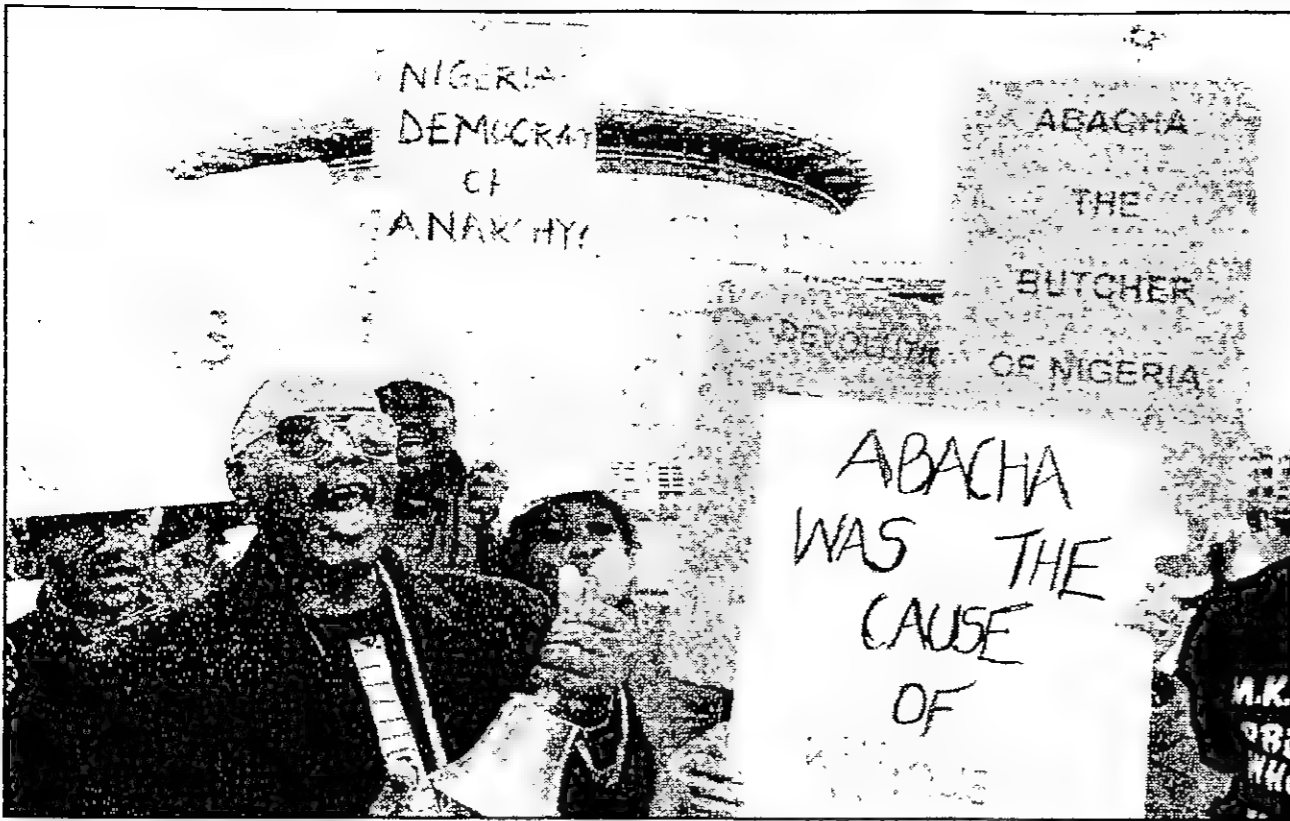 NIGERIA
DEMOCRAT
OF
ANARCHY
ABACHA
THE
BUTCHER
OF NIGERIA
ABACHA
WAS THE
CAUSE
OF
M.K.